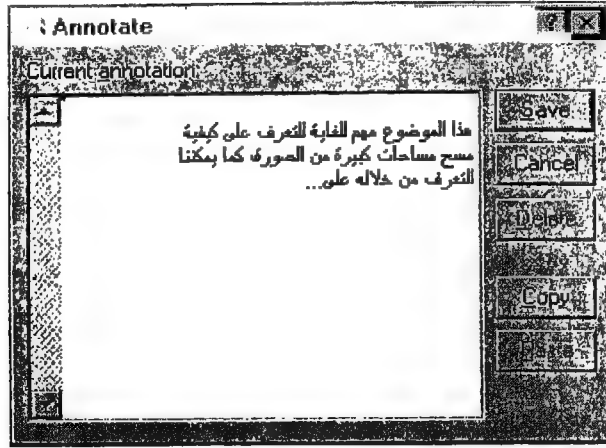 Annotate
Current annotation:
هذا الموضوع مهم للغاية للتعرف على كيفية
مسح مساحات كبيرة من الصورة كما يمكننا
التعرف من خلاله على...
Save
Cancel
Delete
Copy
Paste